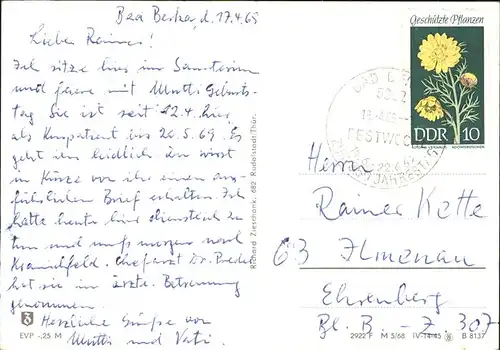 Bad Berka, d. 17.4.69
Lieber Rainer!
Ich sitze hier im Sanatorium
und feiere mit Muttis Geburts-
tag. Sie ist seit 22.4. hier
als Kurpatient bis 20.5.69. Es
geht ihr leidlich du wirst
in Kürze von ihr einen aus-
führlichen Brief erhalten. Ich
hatte heute hier dienstlich zu
tun und muß morgen nach
Kranichfeld. Chefarzt Dr.
hat sie in ärztl. Betreuung
genommen.
Herzliche Grüße von
Mutti und Vati.
EVP -,25 M
Richard Zieschank, 682 Rudolstadt/Thür.
Geschützte Pflanzen
DDR 10
BAD
FESTWOC
Herrn
Rainer Kette
63 Ilmenau
Ehrenberg
Bl. B - Z 307
2922 F M 5/68 IV-14-45 B 8137